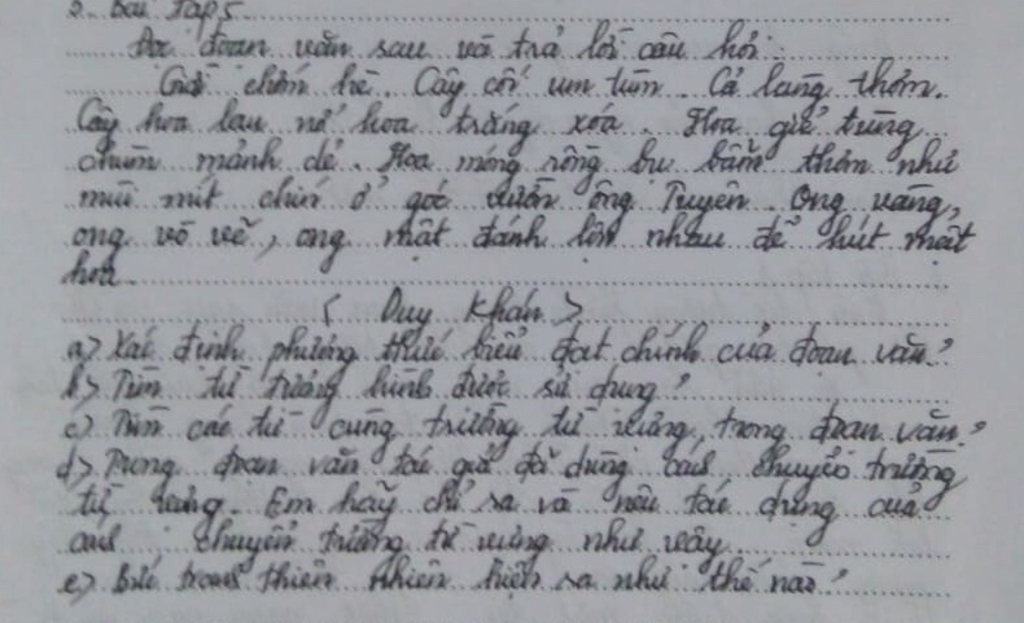 5. Bài tập 5
Đọc đoạn văn sau và trả lời câu hỏi:
Giời chớm hè. Cây cối um tùm. Cả làng thơm.
Cây hoa lan nở hoa trắng xóa. Hoa giẻ từng
chùm mảnh dẻ. Hoa móng rồng bụ bẫm thơm như
mùi mít chín ở góc vườn ông Tuyên. Ong vàng,
ong vò vẽ, ong mật đánh lộn nhau để hút mật
hoa.
( Duy Khán )
a) Xác định phương thức biểu đạt chính của đoạn văn?
b) Tìm từ tượng hình được sử dụng?
c) Tìm các từ cùng trường từ vựng, trong đoạn văn?
d) Trong đoạn văn tác giả đã dùng cách chuyển trường
từ vựng. Em hãy chỉ ra và nêu tác dụng của
cách chuyển trường từ vựng như vậy.
e) Bức tranh thiên nhiên hiện ra như thế nào?